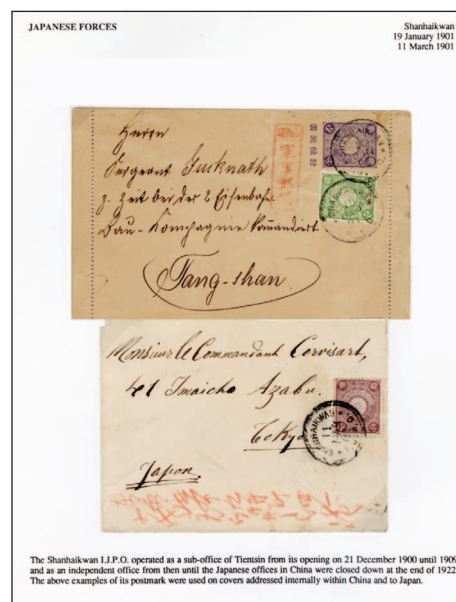 JAPANESE FORCES
Shanhaikwan
19 January 1901
11 March 1901
Herrn
Sergeant
z. Zeit bei der 2 Eisenbahn
Bau-Kompagnie kommandiert
Tang-shan
Monsieur le Commandant Corvisart,
41 Imaicho Azabu.
Tokyo
Japon
The Shanhaikwan I.J.P.O. operated as a sub-office of Tientsin from its opening on 21 December 1900 until 1909
and as an independent office from then until the Japanese offices in China were closed down at the end of 1922.
The above examples of its postmark were used on covers addressed internally within China and to Japan.